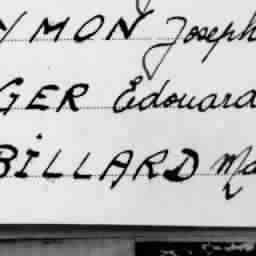 YMON Joseph
GER Edouard
BILLARD Ma